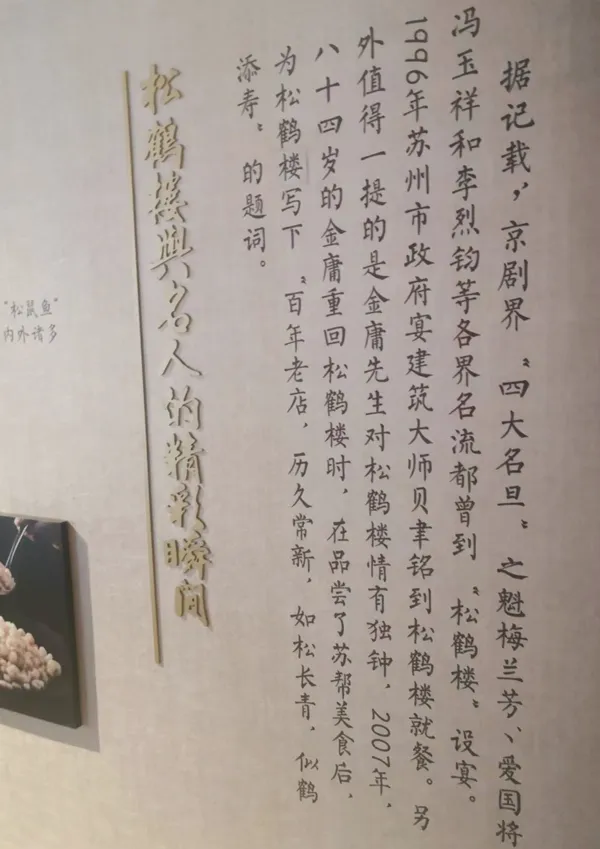 据记载，京剧界“四大名旦”之魁梅兰芳、爱国将
冯玉祥和李烈钧等各界名流都曾到“松鹤楼”设宴。
1996年苏州市政府宴建筑大师贝聿铭到松鹤楼就餐。另
外值得一提的是金庸先生对松鹤楼情有独钟，2007年，
八十四岁的金庸重回松鹤楼时，在品尝了苏帮美食后，
为松鹤楼写下“百年老店，历久常新，如松长青，似鹤
添寿”的题词。
松鶴樓與名人的精彩瞬间
“松鼠鱼”
内外诸多